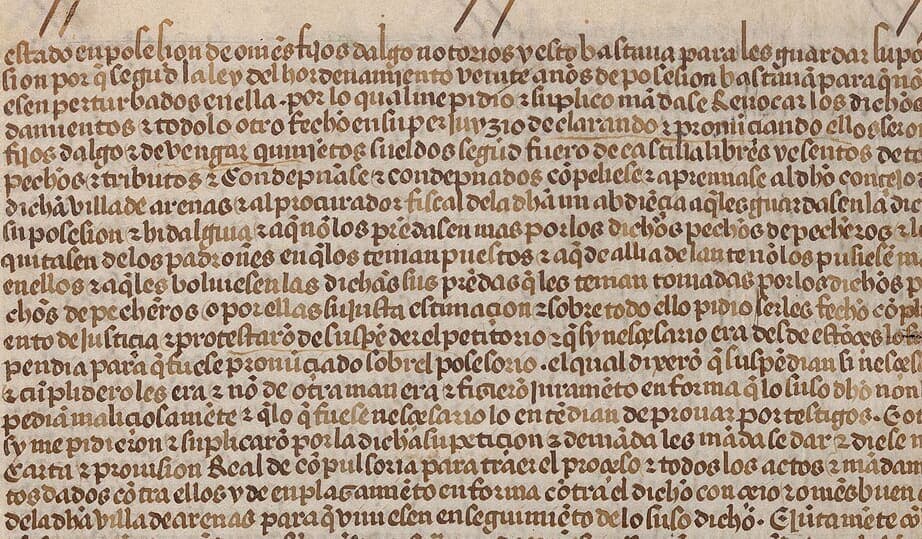 estado en posesion de omẽs fijos dalgo notorios y esto bastaua para les guardar su po
sion por q̃ segũd la ley del hordenamiento veinte años de posesion bastauã para q̃ no
esen perturbados en ella . por lo qual me pidio ⁊ suplico mãdase Reuocar los dichos
damientos ⁊ todo lo otro fecho en su perjuyzio declarando ⁊ pronũciando ellos ser o
fijos dalgo ⁊ de vengar quiniẽtos sueldos segũd fuero de castilla libres y esentos de t
pechos ⁊ tributos ⁊ Condepnase ⁊ condepnados cõpeliese ⁊ apremiase al dho concejo
dicha villa de arenas ⁊ al procurador fiscal dela dha mi abdiẽcia a q̃ les guardasen la di
su posesion ⁊ hidalguia ⁊ a q̃ nõ los prẽdasen mas por los dichos pechos de pecheros ⁊ l
quitasen delos padrones en q̃ los tenian puestos ⁊ a q̃ de alli adelante nõ los pusiesẽ m
en ellos ⁊ a q̃ les boluiesen las dichas sus prẽdas q̃ les tenian tomadas por los dichos p
chos de pecheros o por ellas su justa estimacion ⁊ sobre todo ello pidio serles fecho cõp
ento de justicia ⁊ protestarõ de suspẽder el petitorio ⁊ q̃ sy nesçesario era desde estõces lo
pendia para q̃ fuese pronũciado sobrel posesorio . el qual dixerõ q̃ suspẽdian si nesçe
⁊ cũplidero les era ⁊ nõ de otra manera ⁊ fizierõ juramẽto en forma q̃ lo suso dho non
pedian maliciosamẽte ⁊ q̃ lo q̃ fuese nesçesario lo entẽdian de prouar por testigos . E o
sy me pidieron ⁊ suplicarõ por la dicha su peticion ⁊ demãda les mãdase dar ⁊ diese m
Carta ⁊ prouision Real de cõpulsoria para traer el proceso ⁊ todos los actos ⁊ mãdam
tos dados cõtra ellos y de enplazamiẽto en forma cõtra el dicho conceio ⁊ omẽs buen
dela dha villa de arenas para q̃ viniesen en seguimiẽto de lo suso dicho . E juntamẽte cõ